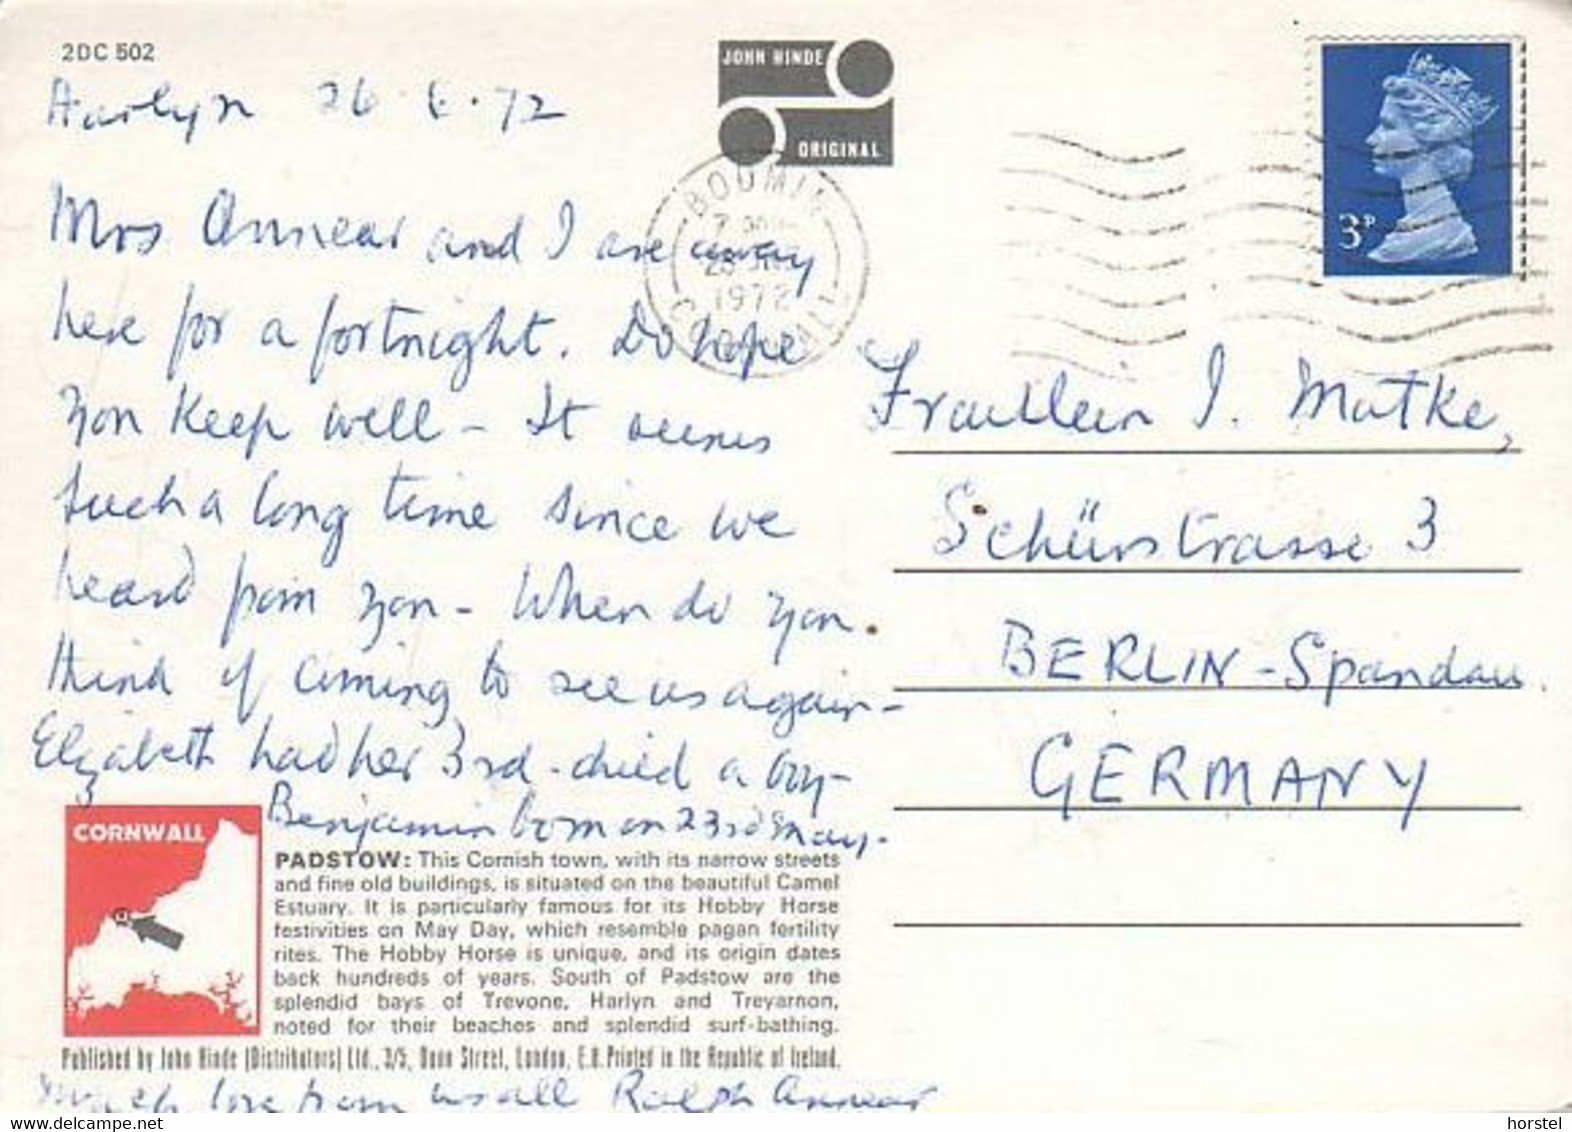 2DC 502
JOHN HINDE
ORIGINAL
Harlyn 26.6.72
BODMIN
1972
CORNWALL
3P
Mrs Annear and I are away
here for a fortnight. Do hope
you keep well - It seems
such a long time since we
heard from you - When do you
think of coming to see us again -
Elizabeth had her 3rd - child a boy -
Benjamin born on 23rd May -
Fraulein I. Mutke,
Schürstrasse 3
BERLIN - Spandau.
GERMANY
CORNWALL
PADSTOW: This Cornish town, with its narrow streets
and fine old buildings, is situated on the beautiful Camel
Estuary. It is particularly famous for its Hobby Horse
festivities on May Day, which resemble pagan fertility
rites. The Hobby Horse is unique, and its origin dates
back hundreds of years. South of Padstow are the
splendid bays of Trevone, Harlyn and Treyarnon,
noted for their beaches and splendid surf-bathing.
Published by John Hinde (Distributors) Ltd., 3/5, Dean Street, London, E.8. Printed in the Republic of Ireland.
Much love from us all Ralph Annear
horstel
www.delcampe.net